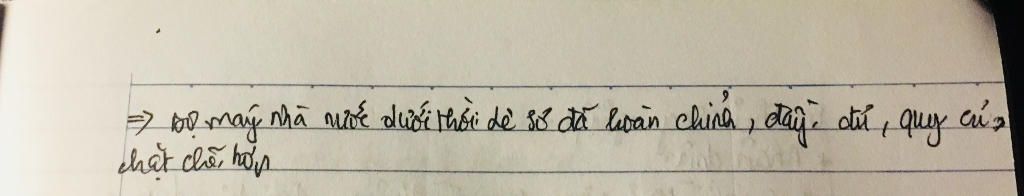 => Bộ máy nhà nước dưới thời Lê sơ đã hoàn chỉnh, đầy đủ, quy củ,
chặt chẽ hơn